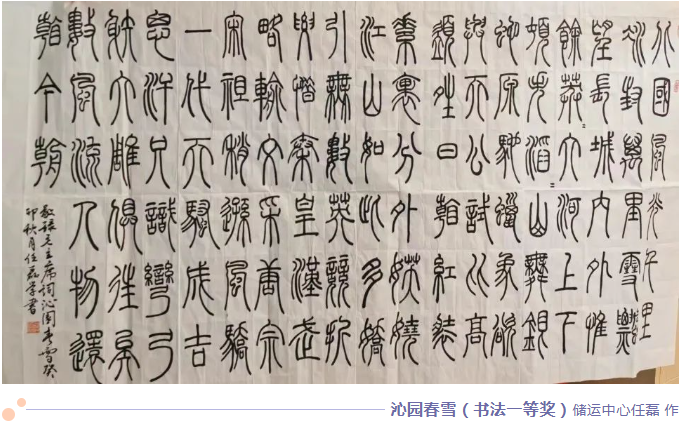 北國風光千里
冰封萬里雪飄
望長城内外惟
餘莽=大河上下
頓失滔=山舞銀
蛇原馳蠟象欲
與天公試比高
須晴日看紅裝
素裹分外妖嬈
江山如此多嬌
引無數英競折
腰惜秦皇漢武
略輸文采唐宗
宋祖稍遜風騷
一代天驕成吉
思汗只識彎弓
射大雕俱往矣
數風流人物還
看今朝
敬錄毛主席詞沁園春雪癸
卯秋月任磊學書
沁园春雪（书法一等奖）储运中心任磊 作